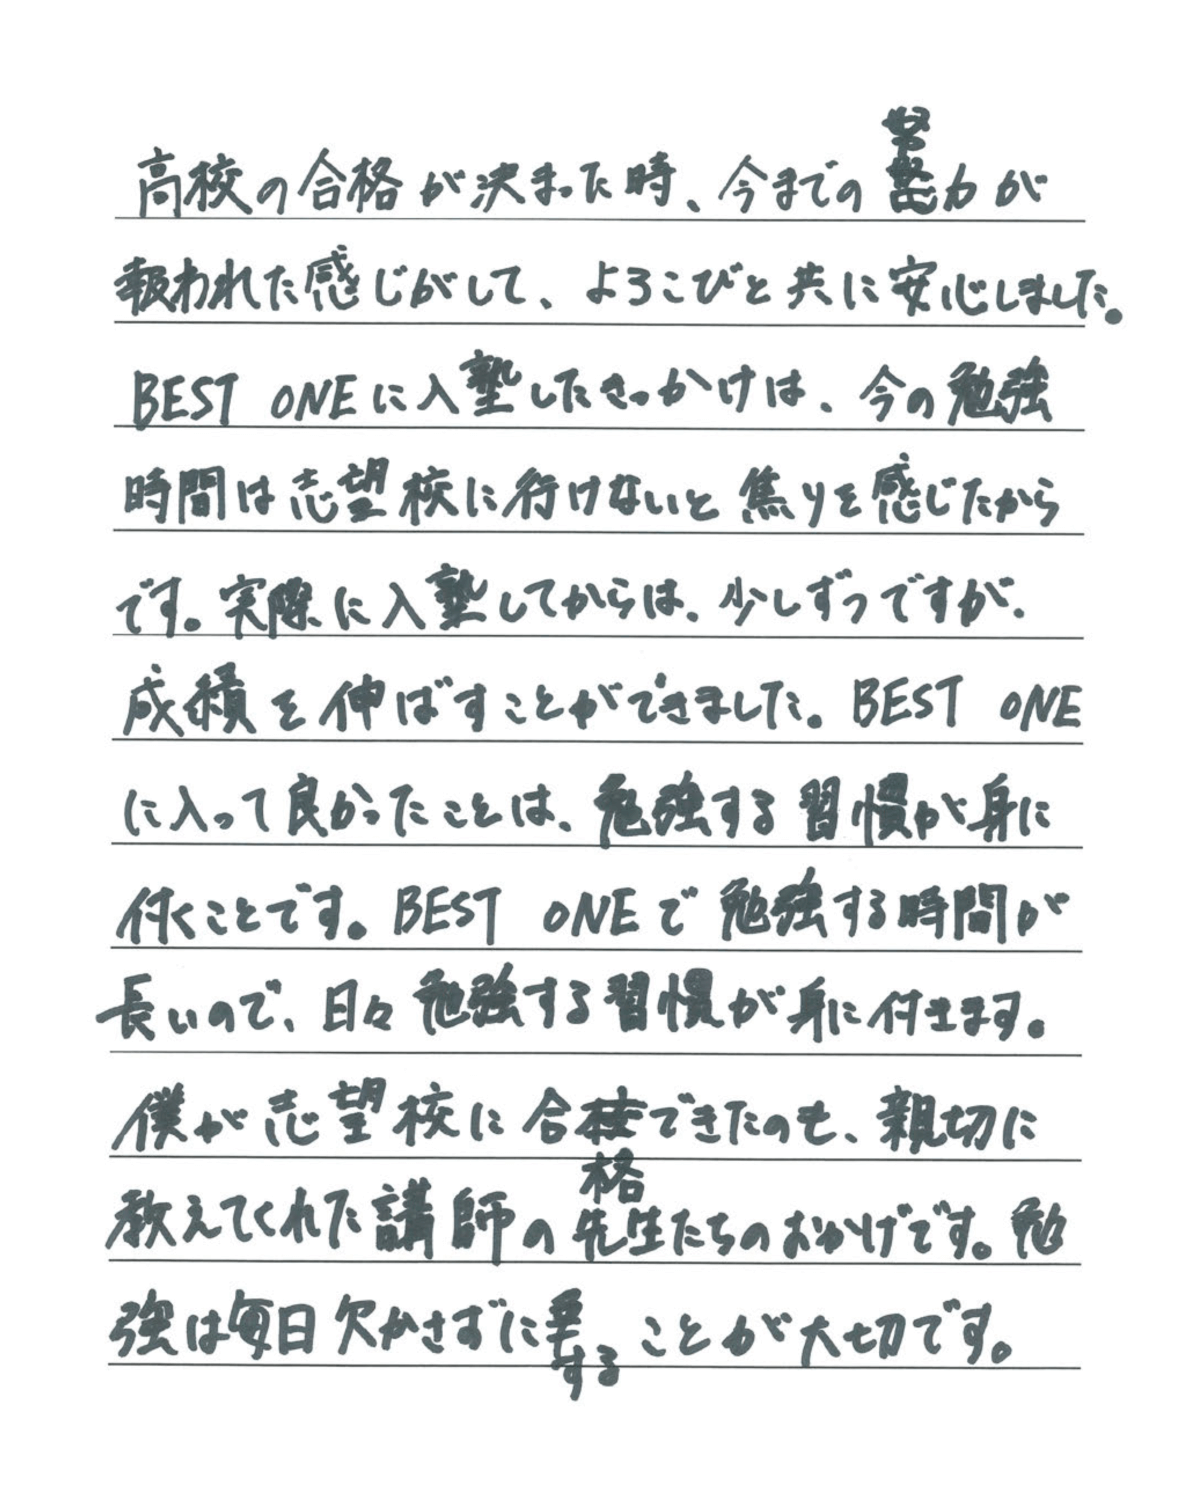 高校の合格が決まった時、今までの努力が
報われた感じがして、よろこびと共に安心しました。
BEST ONEに入塾したきっかけは、今の勉強
時間は志望校に行けないと焦りを感じたから
です。実際に入塾してからは、少しずつですが、
成績を伸ばすことができました。BEST ONE
に入って良かったことは、勉強する習慣が身に
付くことです。BEST ONEで勉強する時間が
長いので、日々勉強する習慣が身に付きます。
僕が志望校に合格できたのも、親切に
教えてくれた講師の先生たちのおかげです。勉
強は毎日欠かさずにすることが大切です。